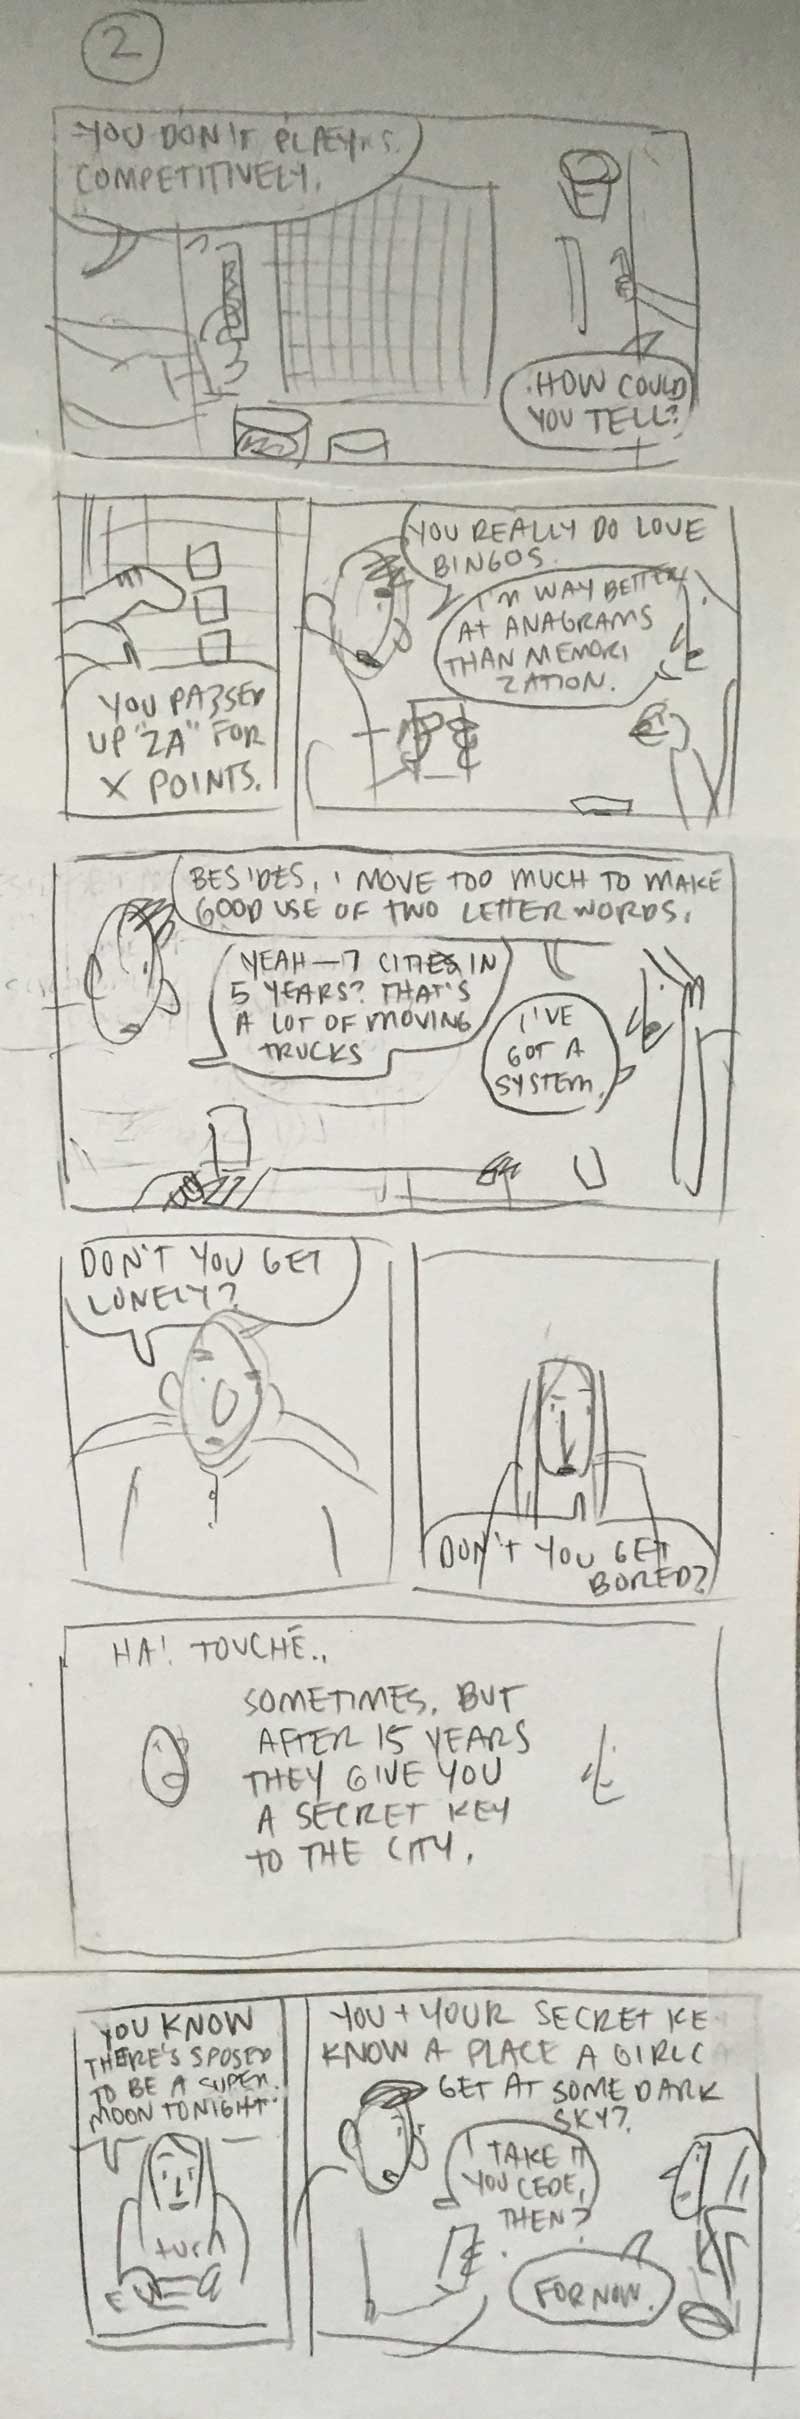 2
YOU DON'T PLAY
COMPETITIVELY.
HOW COULD
YOU TELL?
YOU PASSED
UP "ZA" FOR
X POINTS.
YOU REALLY DO LOVE
BINGOS.
I'M WAY BETTER
AT ANAGRAMS
THAN MEMORI
ZATION.
BESIDES, I MOVE TOO MUCH TO MAKE
GOOD USE OF TWO LETTER WORDS.
YEAH—7 CITIES IN
5 YEARS? THAT'S
A LOT OF MOVING
TRUCKS
I'VE
GOT A
SYSTEM.
DON'T YOU GET
LONELY?
DON'T YOU GET
BORED?
HA! TOUCHÉ..
SOMETIMES. BUT
AFTER 15 YEARS
THEY GIVE YOU
A SECRET KEY
TO THE CITY.
YOU KNOW
THERE'S SPOSED
TO BE A SUPER
MOON TONIGHT.
turn
YOU + YOUR SECRET KE
KNOW A PLACE A GIRL C
GET AT SOME DARK
SKY?
I TAKE IT
YOU CEDE,
THEN?
FOR NOW.